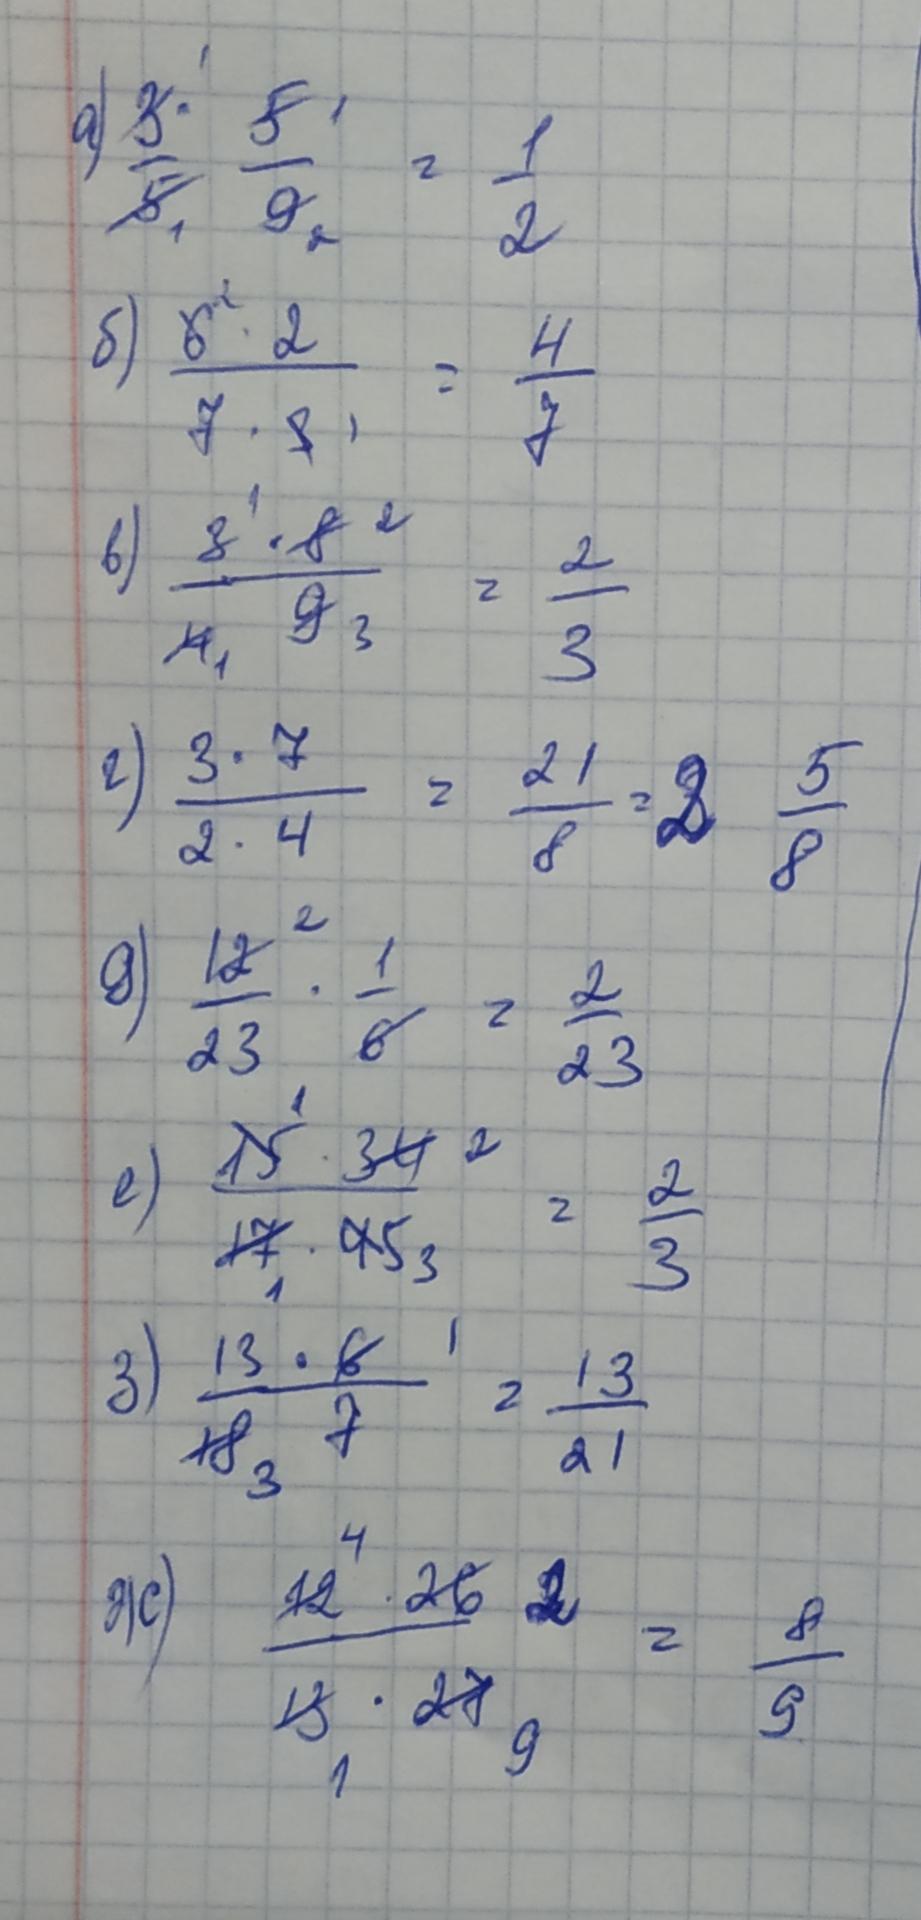 а) 3/5 · 5/9 = 1/2
б) 6 · 2 / 7 · 3 = 4/7
в) 3 · 8 / 4 9 = 2/3
г) 3 · 7 / 2 · 4 = 21/8 = 2 5/8
д) 12/23 · 1/6 = 2/23
е) 15 · 34 / 17 · 45 = 2/3
з) 13 · 6 / 18 7 = 13/21
ж) 12 · 26 / 13 · 27 = 8/9